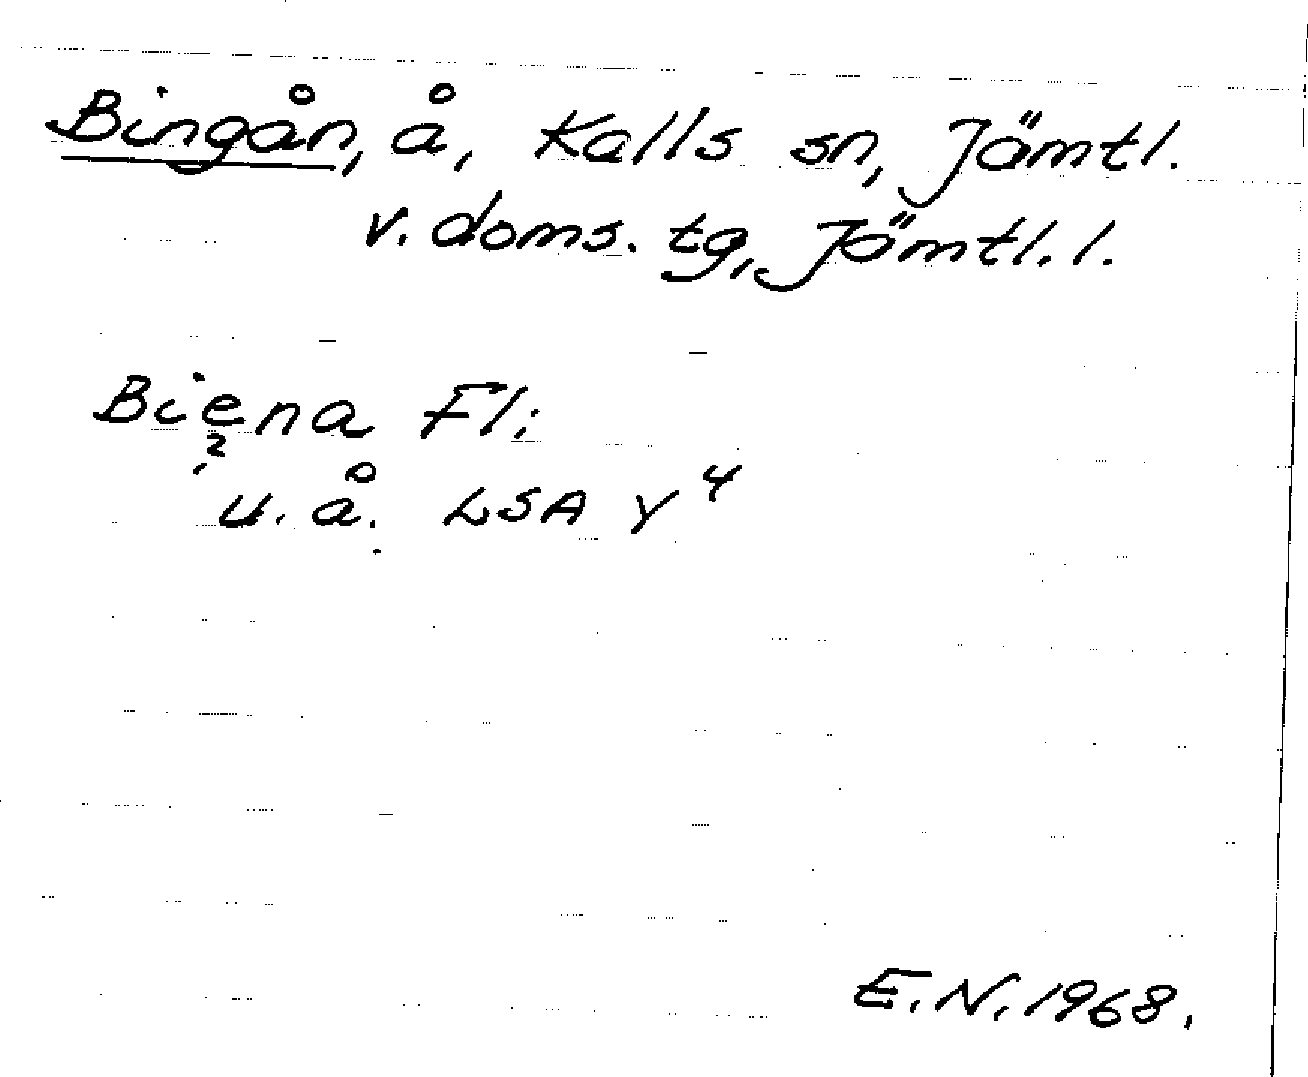 Bingån, å, Kalls sn, Jämtl.
v. doms. tg, Jämtl. l.
Biena Fl:
2
u. å. LSA Y 4
E. N. 1968.